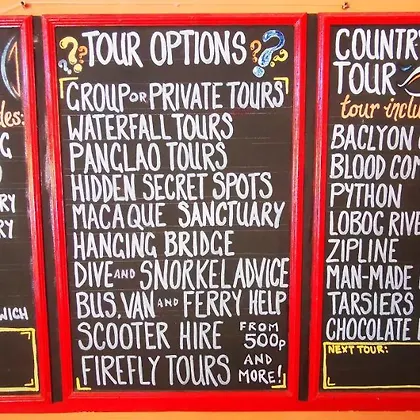 des:
G
RY
RY
WICH
?? TOUR OPTIONS ??
GROUP OR PRIVATE TOURS
WATERFALL TOURS
PANGLAO TOURS
HIDDEN SECRET SPOTS
MACAQUE SANCTUARY
HANGING BRIDGE
DIVE AND SNORKEL ADVICE
BUS, VAN AND FERRY HELP
SCOOTER HIRE FROM 500P
FIREFLY TOURS AND MORE!
COUNTR
TOUR
tour inclu
BACLYON
BLOOD COM
PYTHON
LOBOC RIVE
ZIPLINE
MAN-MADE
TARSIERS
CHOCOLATE
NEXT TOUR: